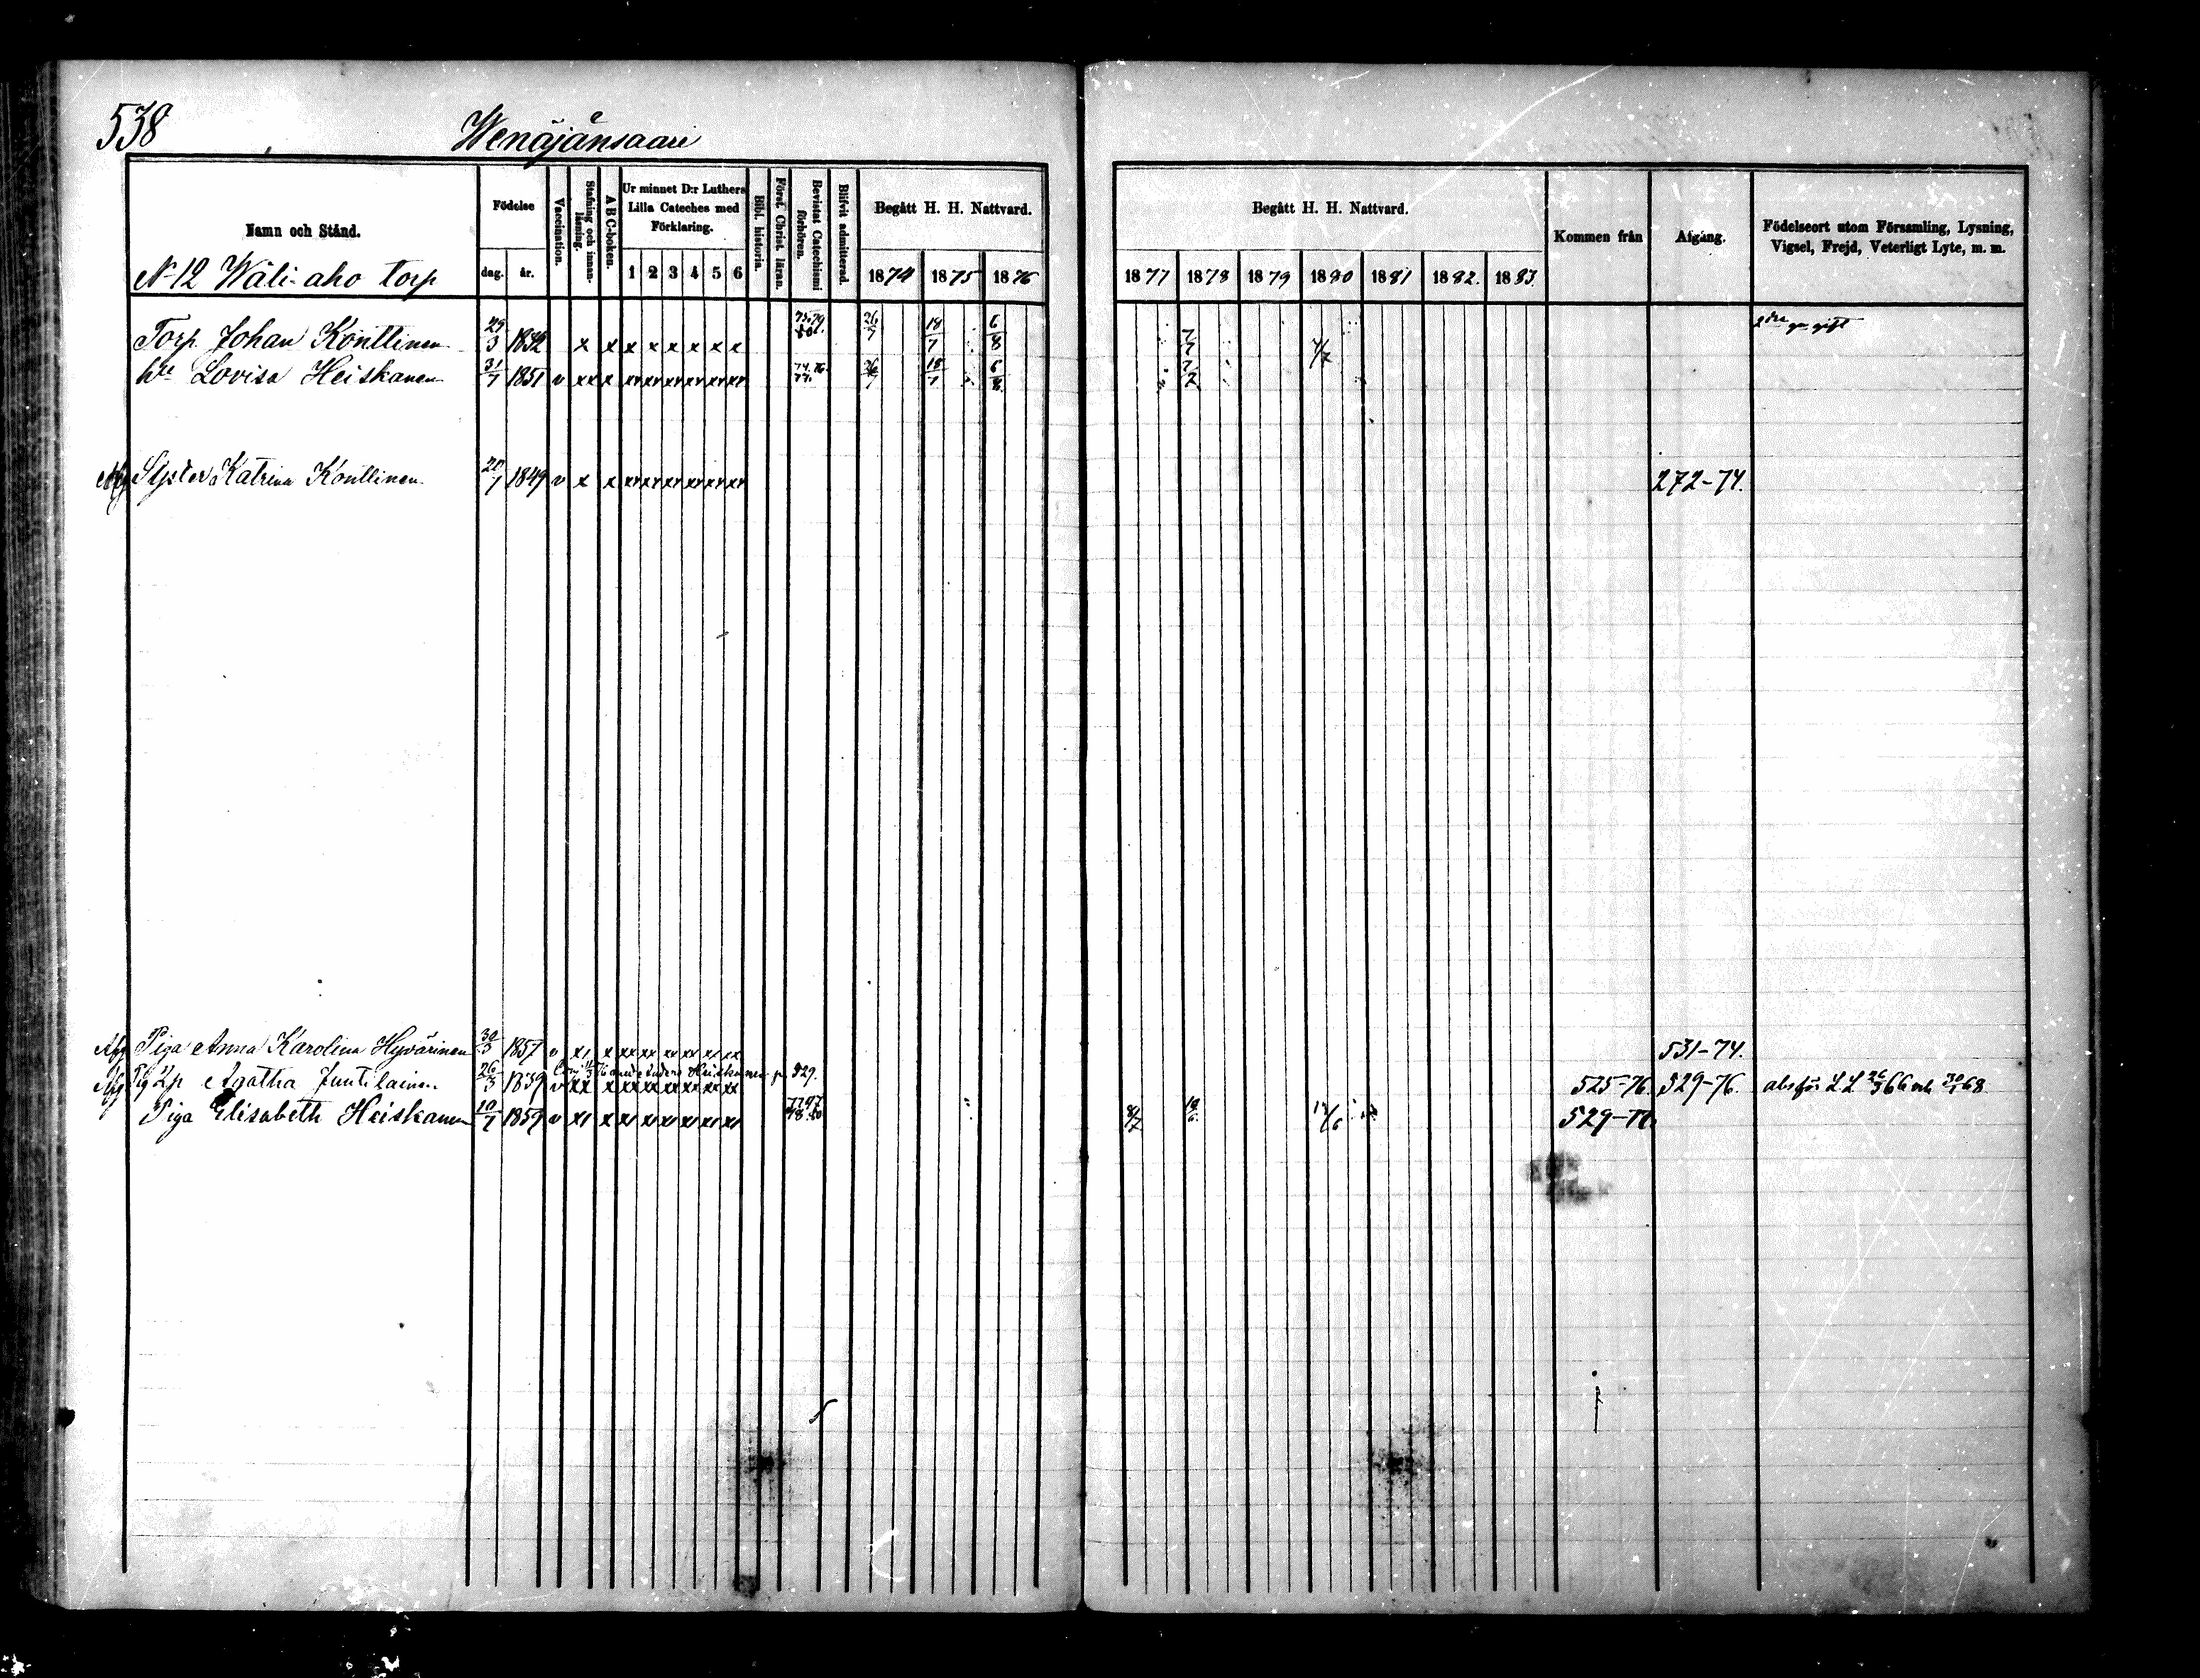 538
Wenäjänsaari
Namn och Stånd.
Födelse
dag. år.
Vaccination.
Stafning och innan-läsning.
ABC-boken.
Ur minnet D:r Luthers Lilla Cateches med Förklaring.
1 2 3 4 5 6
Bibl. historia.
Förest. Christ. läran.
Bevistat Catechismi förhören.
Blifvit admitterad.
Begått H. H. Nattvard.
1874 1875 1876
Begått H. H. Nattvard.
1877 1878 1879 1880 1881 1882. 1883.
Kommen från
Afgång.
Födelseort utom Församling, Lysning, Vigsel, Frejd, Veterligt Lyte, m. m.
N 12 Wäli-aho torp
Torp Johan Konttinen 1832 x x x x x x x x 26/7 6/8 7/7
Lovisa Heiskanen 31/7 1851 v xx x xx xx xx xx xx xx 26/7 18/7 6/8 7/7
Afg Syster Katrina Konttinen 20/7 1849 v x x xx xx xx xx xx xx 272-74.
Afg Piga Anna Karolina Hyvärinen 30/3 1857 v xx x xx xx xx xx xx xx 531-74.
Heiskanen p. 529.
Afg Agatha Juntilainen 26/3 1839 v xx x xx xx xx xx xx xx 525-76. 529-76.
Piga Elisabeth Heiskanen 10/7 1859 v xx x xx xx xx xx xx xx 8/7 529-77.